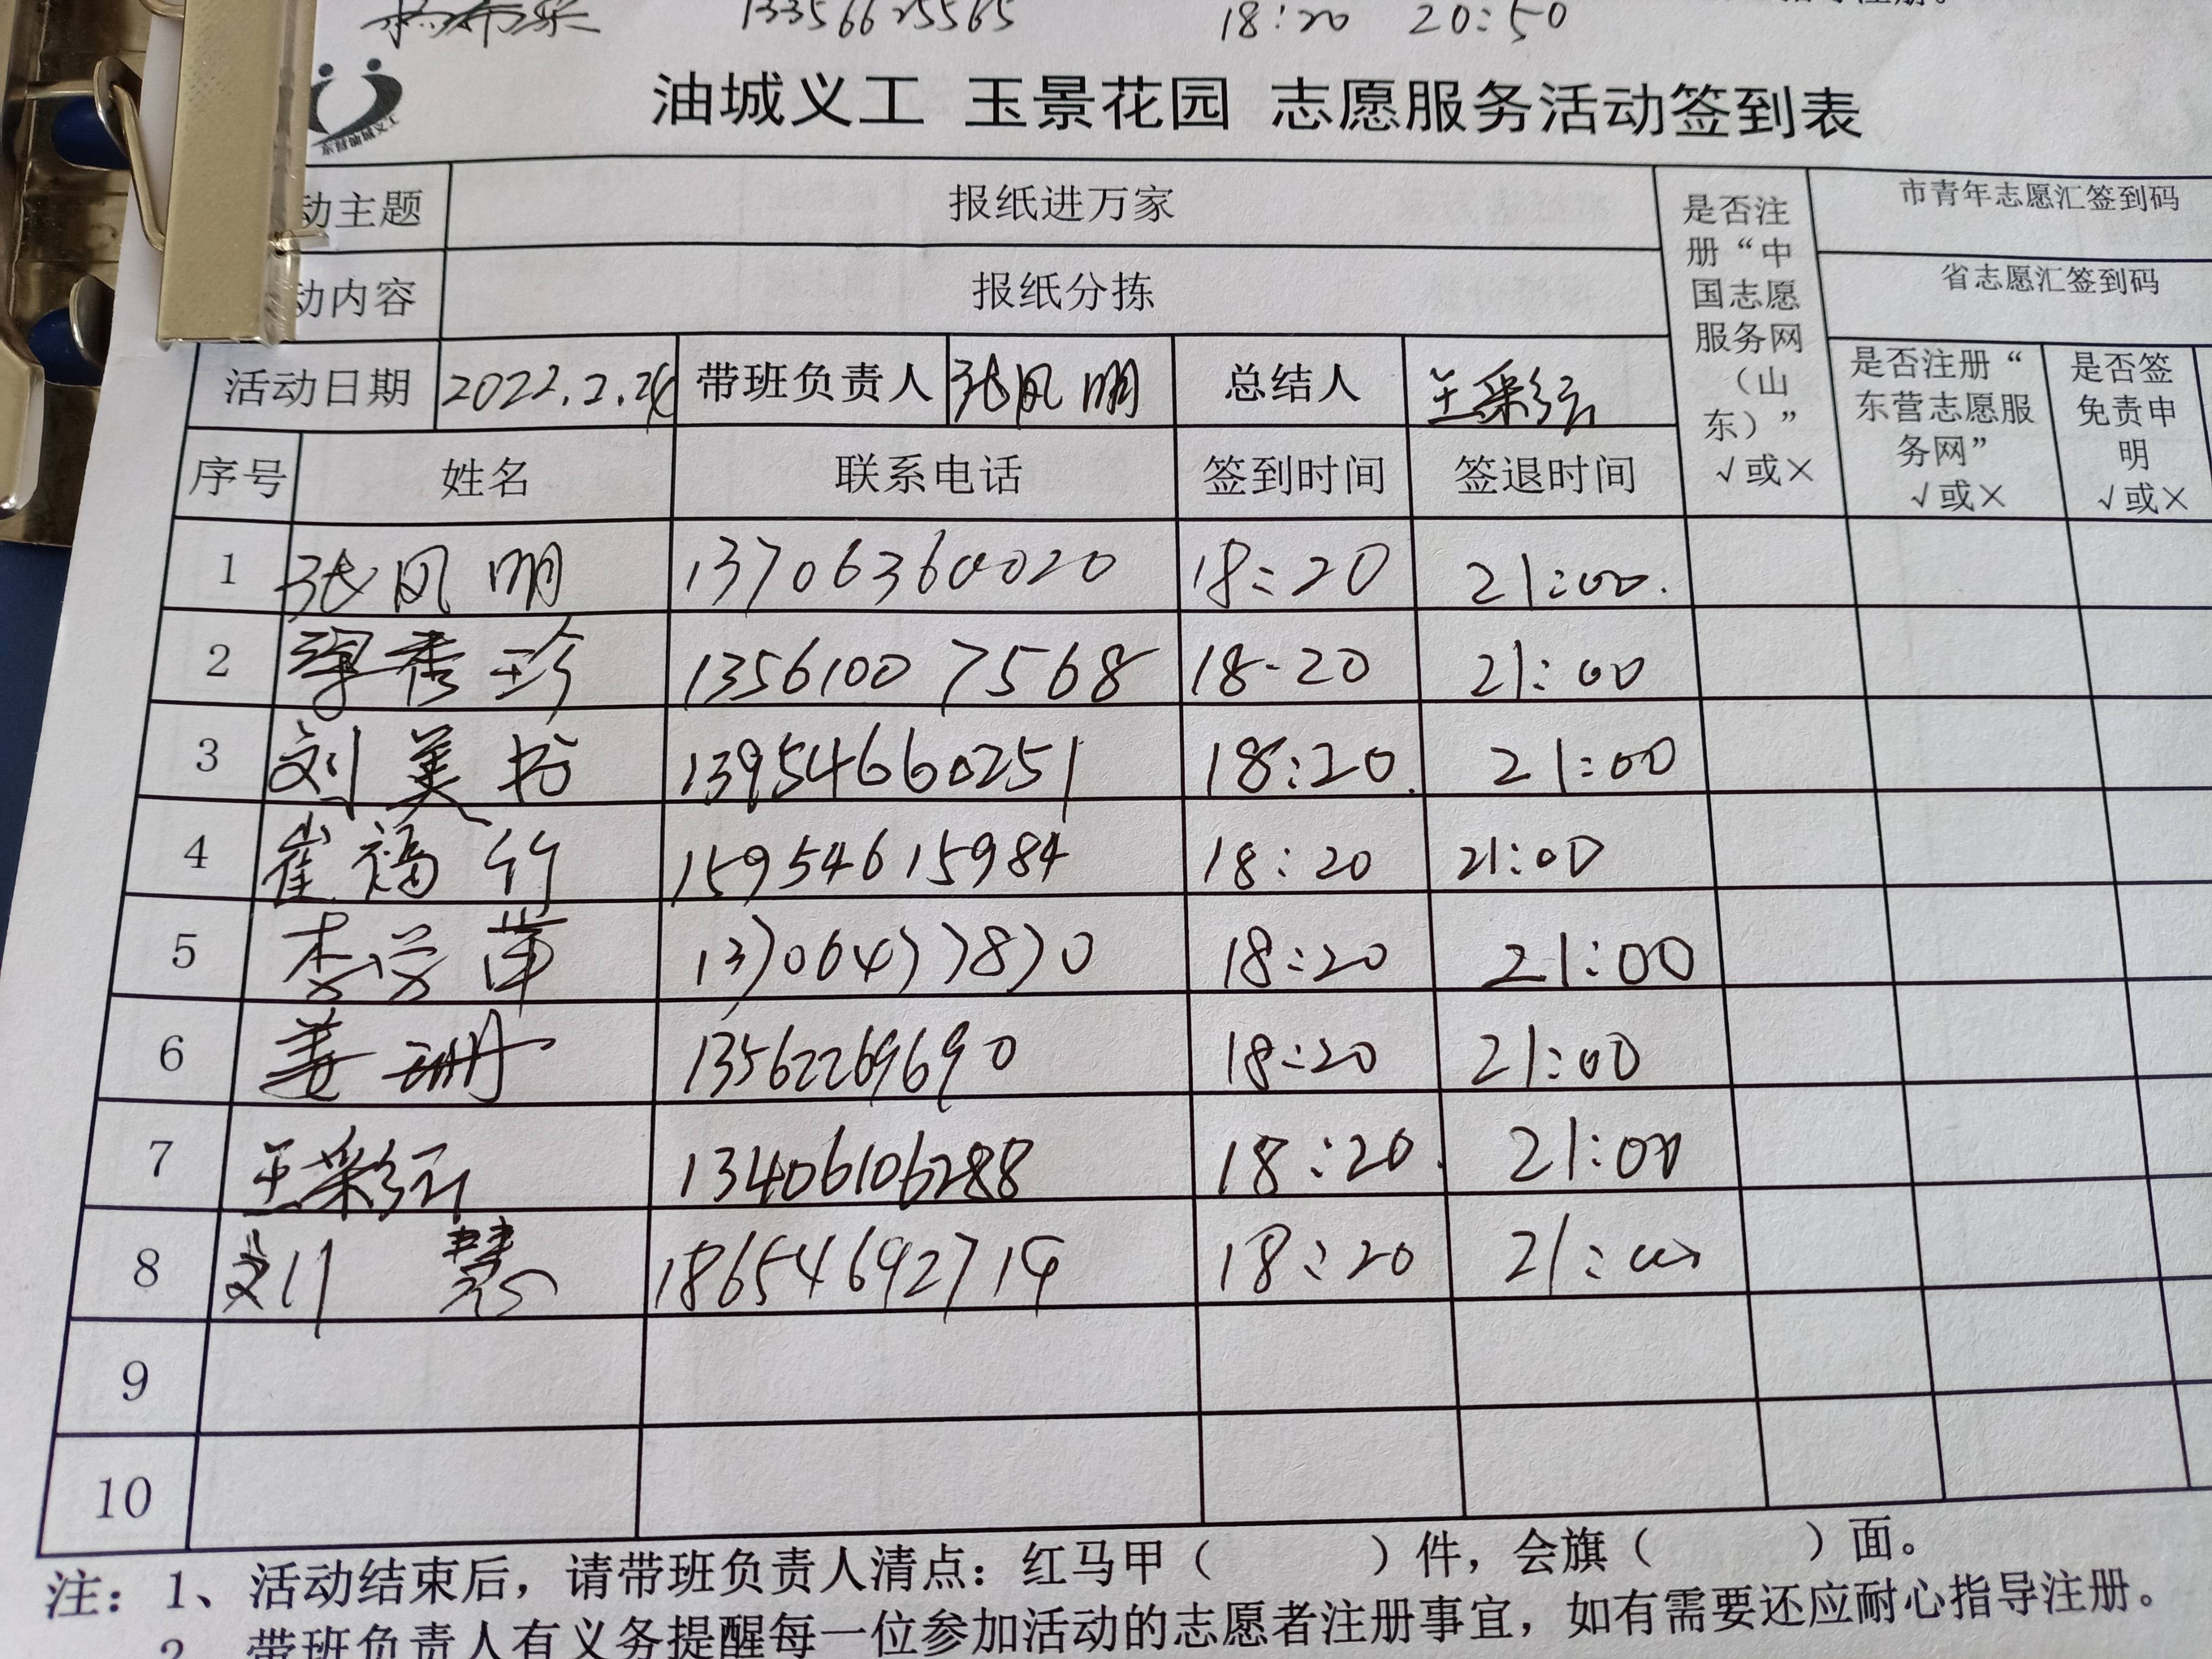 13356625565 18:20 20:50
东营油城义工
油城义工 玉景花园 志愿服务活动签到表
动主题 报纸进万家
动内容 报纸分拣
是否注册“中国志愿服务网（山东）” √或×
市青年志愿汇签到码
省志愿汇签到码
是否注册“东营志愿服务网” √或×
是否签免责申明 √或×
活动日期 2022.2. 带班负责人 张风明 总结人 王彩云
序号 姓名 联系电话 签到时间 签退时间
1 张风明 13706360020 18:20 21:00.
2 秀珍 13561007568 18-20 21:00
3 刘美 13954660251 18:20. 21:00
4 崔福竹 15954615984 18:20 21:00
5 李学苹 13706477870 18:20 21:00
6 姜珊 13562269690 18:20 21:00
7 王彩云 13406106288 18:20. 21:00
8 刘慧 18654692714 18:20 21:00
9
10
注：1、活动结束后，请带班负责人清点：红马甲（ ）件，会旗（ ）面。
2、带班负责人有义务提醒每一位参加活动的志愿者注册事宜，如有需要还应耐心指导注册。